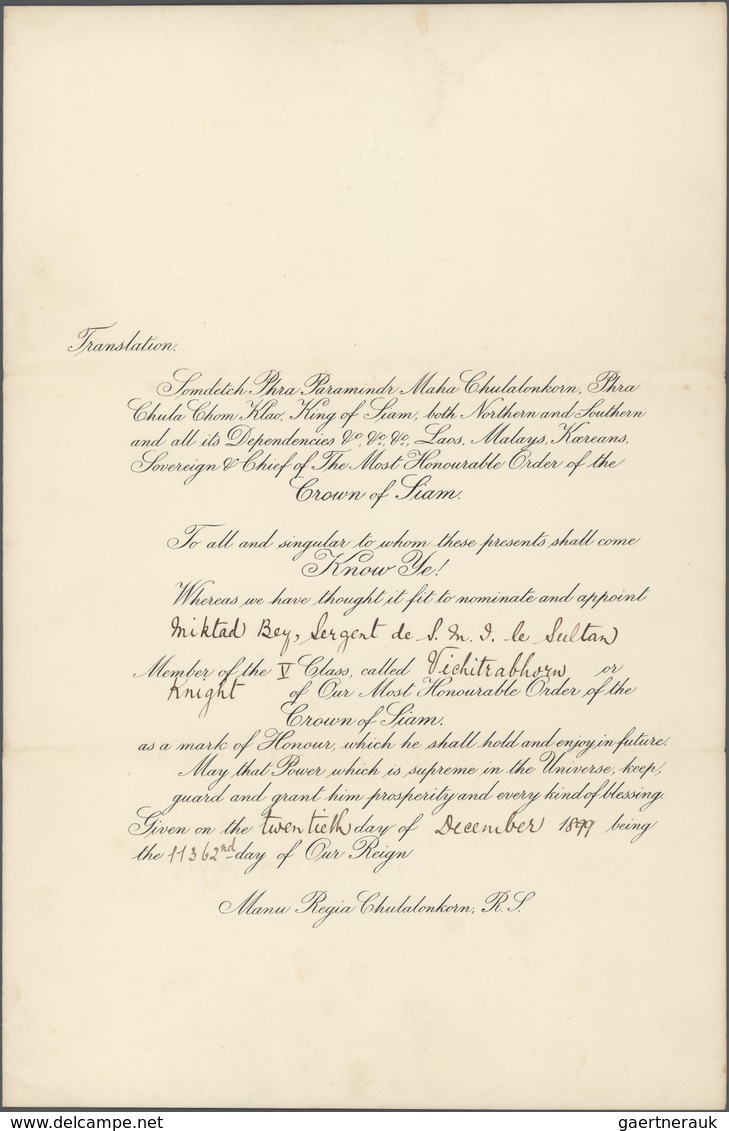 Translation.
Somdetch Phra Paramindr Maha Chulalonkorn, Phra
Chula Chom Klao, King of Siam, both Northern and Southern
and all its Dependencies &c, &c, &c, Laos, Malays, Kareans,
Sovereign & Chief of The Most Honourable Order of the
Crown of Siam.
To all and singular to whom these presents shall come
Know Ye!
Whereas we have thought it fit to nominate and appoint
Miktad Bey, Sergent de S. M. I. le Sultan
Member of the V Class, called Vichitrabhorn or
Knight of Our Most Honourable Order of the
Crown of Siam.
as a mark of Honour, which he shall hold and enjoy in future.
May that Power which is supreme in the Universe, keep,
guard and grant him prosperity and every kind of blessing.
Given on the twentieth day of December 1899 being
the 11362nd day of Our Reign
Manu Regia Chulalonkorn, R.S.
www.delcampe.net
gaertnerauk